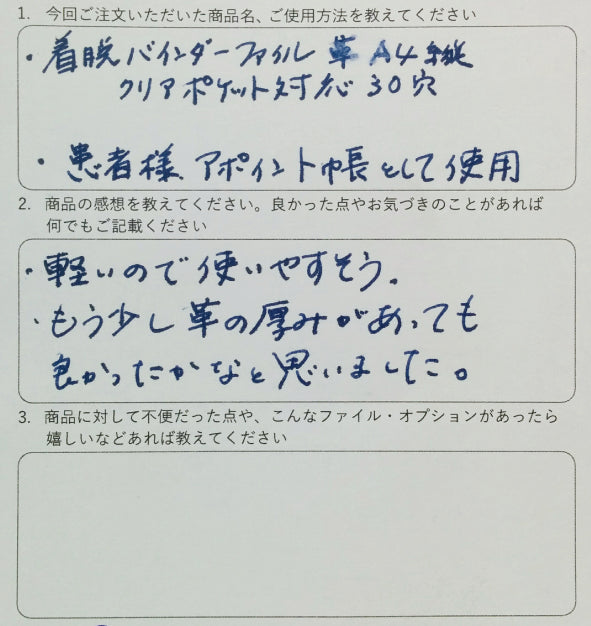 1. 今回ご注文いただいた商品名、ご使用方法を教えてください
・着脱バインダーファイル 革 A4 縦
クリアポケット対応 30穴
・患者様、アポイント帳として使用
2. 商品の感想を教えてください。良かった点やお気づきのことがあれば
何でもご記載ください
・軽いので使いやすそう。
・もう少し革の厚みがあっても
良かったかなと思いました。
3. 商品に対して不便だった点や、こんなファイル・オプションがあったら
嬉しいなどあれば教えてください